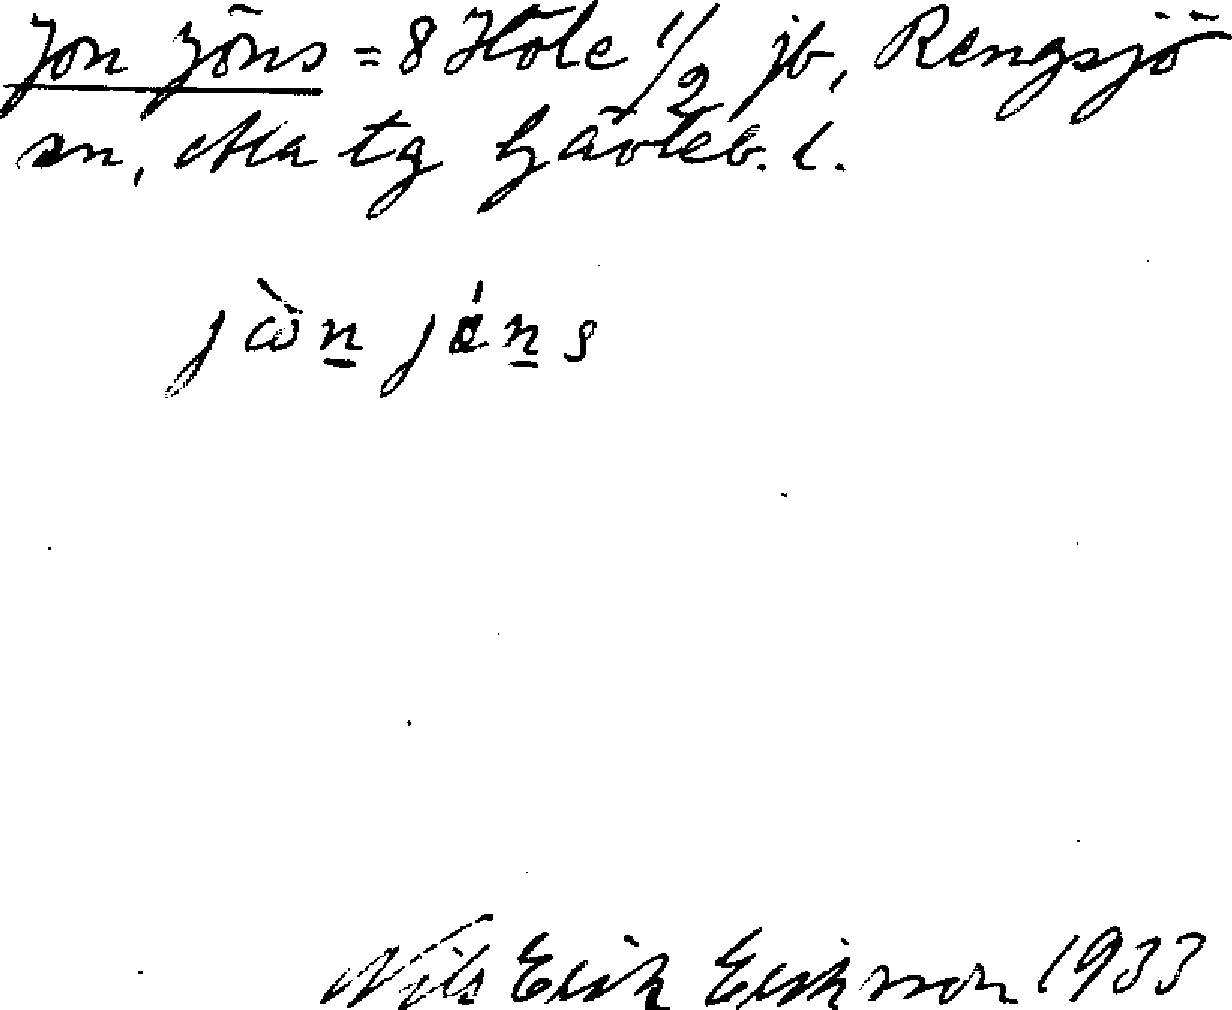 Jon Jöns = 8 Höle 1/2 jb, Rengsjö
sn, Ala tg Gävleb. l.
jὼn̲ján̲s
Nils Erik Eriksson 1933